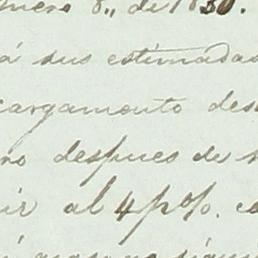 enero 8,, de 1830.
á sus estimadas
cargamento des
ro despues de
ir al 4 p%. co